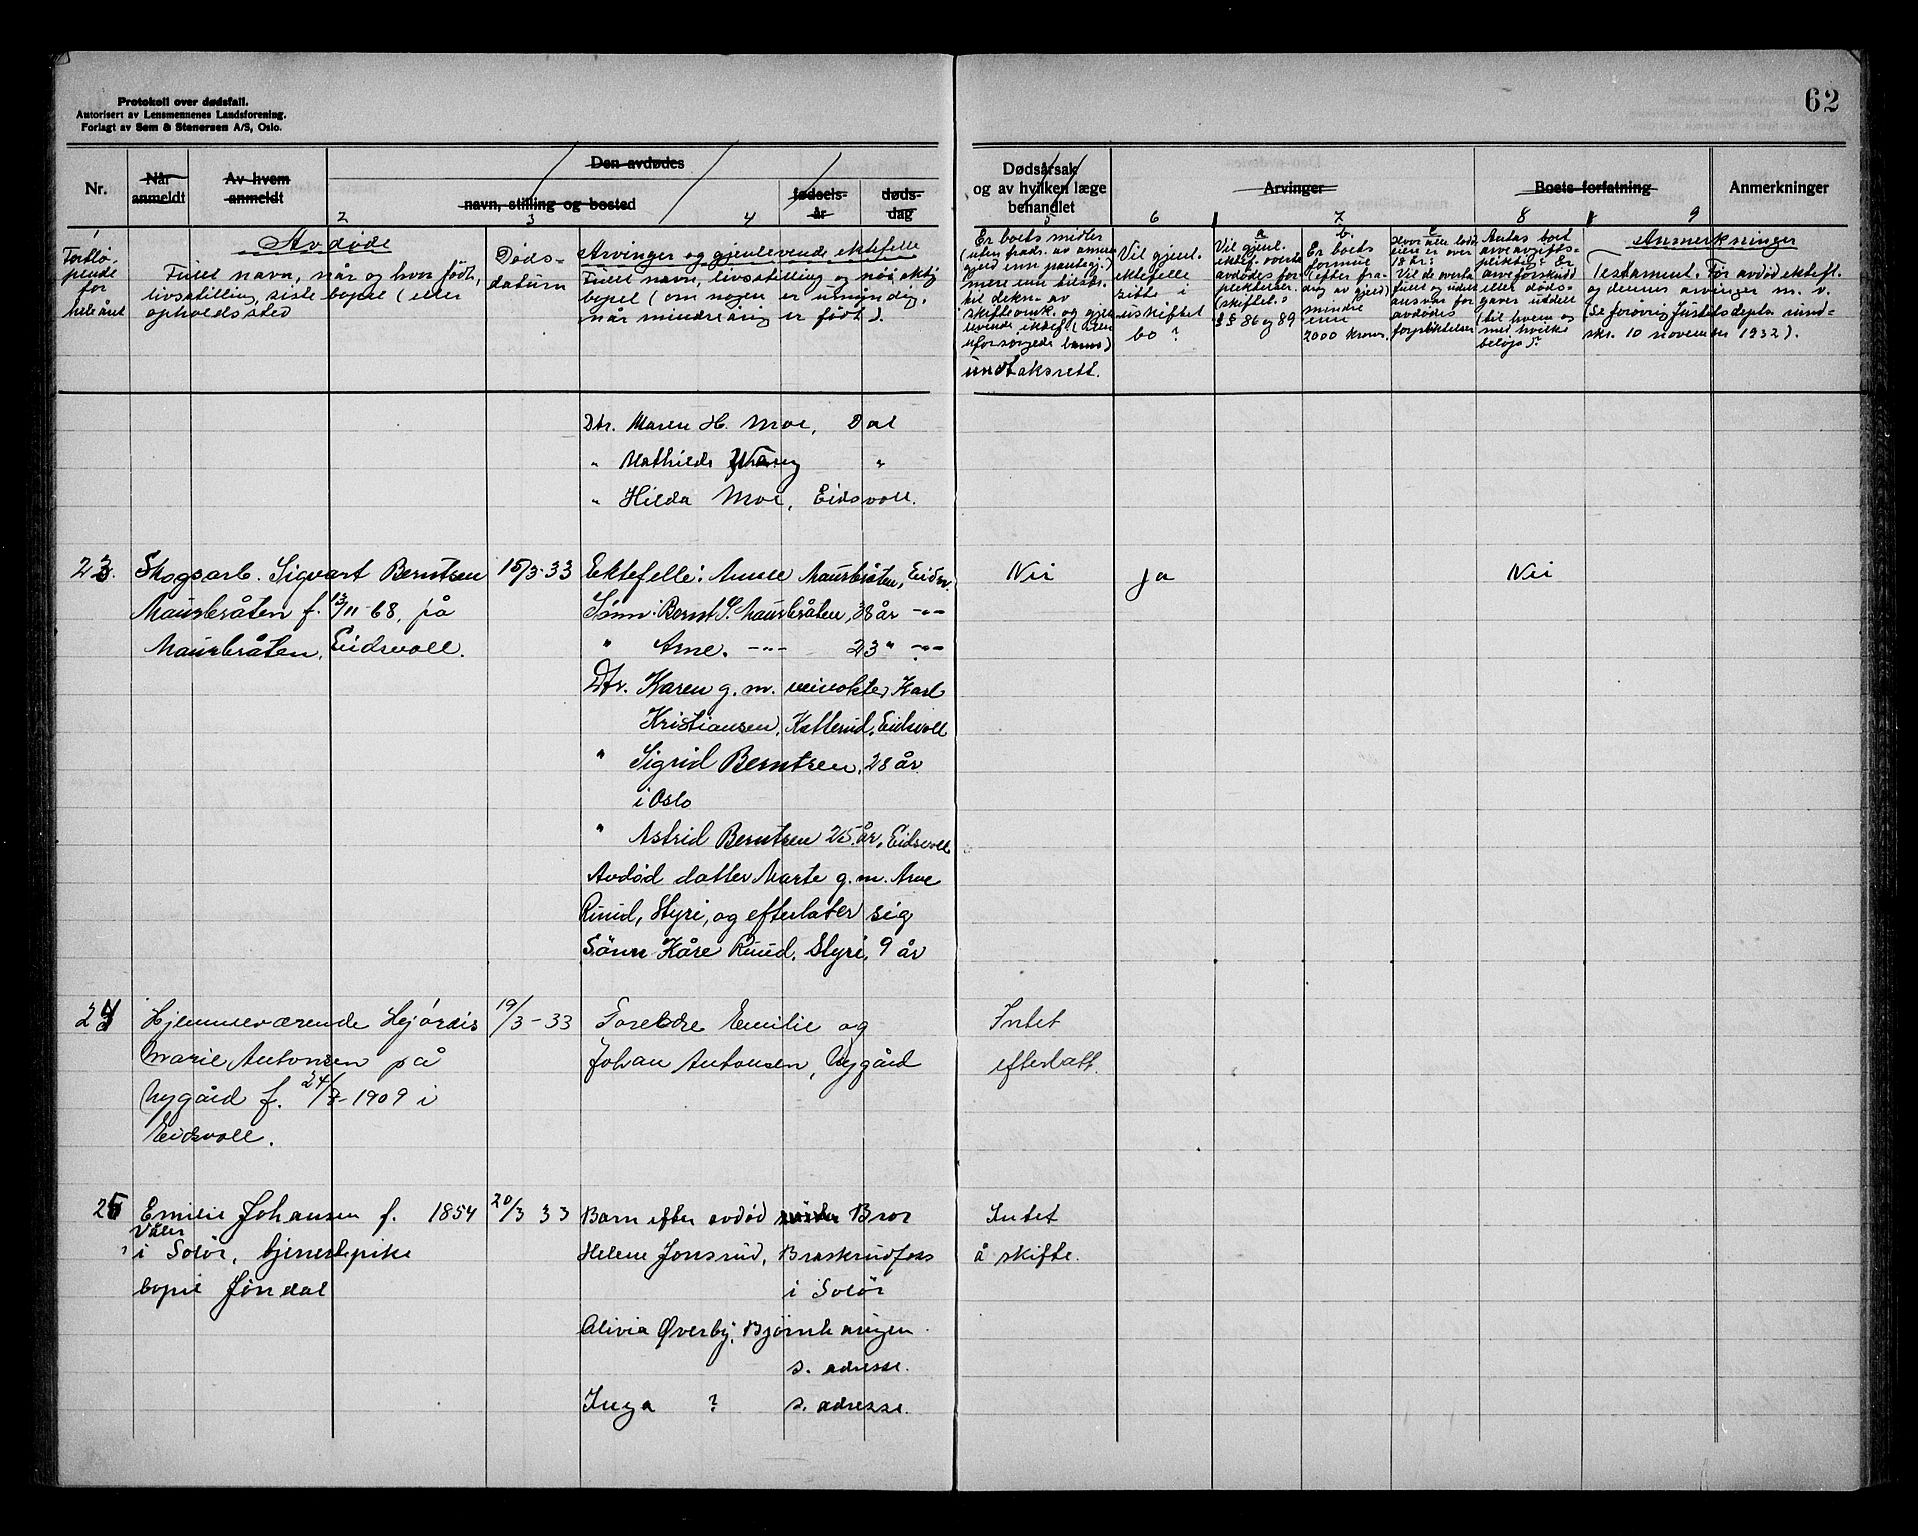 Protokoll over dødsfall.
Autorisert av Lensmennenes Landsforening.
Forlagt av Sem & Stenersen A/S, Oslo.
62
Nr.
Når anmeldt
Av hvem anmeldt
Den avdødes
navn, stilling og bosted
fødsels-år
døds-dag
Dødsårsak
og av hvilken læge
behandlet
Arvinger
Boets forfatning
Anmerkninger
1 2 3 4 5 6 7 8 9
Fortlø-
pende
for
hele året
Avdøde
Fullt navn, når og hvor født,
livsstilling, siste bopel (eller
opholdssted
Døds-
datum
Arvinger og gjenlevende ektefelle
Fullt navn, livsstilling og nøiaktig
bopel (om nogen er umyndig,
når mindreårig er født).
Er boets midler
(uten fradr. av annen
gjeld enn pantegj.)
mere enn tilstr.
til dekn. av
skifteomk. og gjen-
levende ektef. (eller
uforsørgede barns)
undtaksrett.
Vil gjenl.
ektefelle
sitte i
uskiftet
bo?
a
Vil gjenl.
ektef. overta
avdødes for-
plektelser.
(skiftel.s
§§ 86 og 89
b.
Er boets
formue
(efter fra-
drag av gjeld)
mindre
enn
2000 kroner.
c
18 år?
Vil de overta
ansvar for
avdødes
forpliktelser
Antas boet
arveavgifts-
pliktig? Er
arveforskudd
eller døds-
gaver utdelt
(til hvem og
med hvilke
beløp)?
Anmerkninger
Testament. Før avdød ektef.
og dennes arvinger m. v.
(Se forøvrig Justisdepts rund-
skr. 10 november 1932).
Dtr. Maren H. Moe, Dal
" Mathilde "
" Hilda Moe, Eidsvoll.
23. Skogsarb. Sigvart Berntsen 15/3-33 Ektefelle: Anne Maurbråten, Eidsv. Nei ja Nei
Maurbråten f. 13/11-68, på Sønn: Bernt S. Maurbråten, 38 år -"-
Maurbråten, Eidsvoll. " Arne. -"- 23 " -"-
Dtr. Karen g.m. Karl
Kristiansen, Katterud, Eidsvoll
" Sigrid Berntsen, 28 år
i Oslo
" Astrid Berntsen 25 år, Eidsvoll
Avdød datter Marte g.m. Arne
Ruud, Styri, og efterlater sig
Sönn Kåre Ruud, Styri, 9 år
24 Hjemmeværende Hjördis 19/3-33 Foreldre Emilie og Intet
Marie Antonsen på Johan Antonsen, Nygård efterlatt.
Nygård f. 24/8-1909 i
Eidsvoll.
25 Emilie Johansen f. 1854 20/3 33 Barn efter avdød Bror Intet
Våler
i Solör, tjenestepike Helene Jonsrud, Braskerudfoss å skifte.
bopel Jøndal i Solör
Olivia Øverby, Bjørnhaugen
s. adresse.
Inga ? s. adresse.